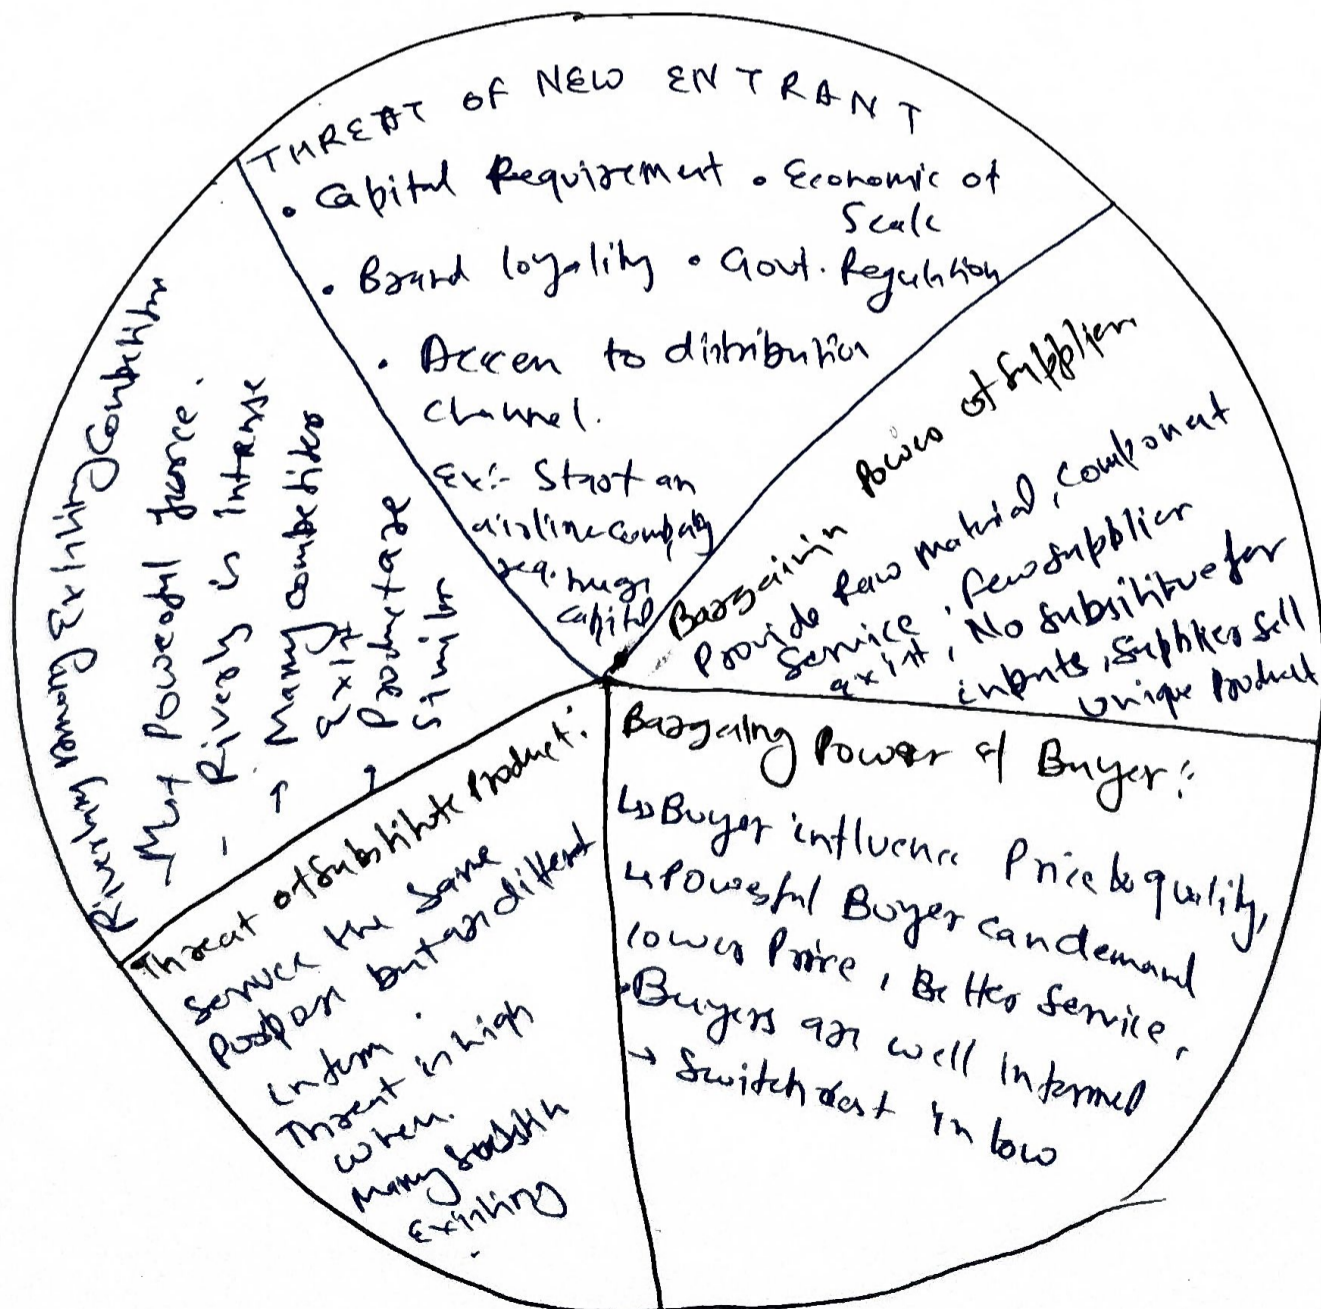 THREAT OF NEW ENTRANT
• Capital Requirement • Economic of
Scale
• Brand loyality • Govt. Regulation
• Access to distribution
channel.
Ex:- Start an
airline company
req. huge
capital
Bargainin Power of Supplier
Provide Raw material, Component
Service, few supplier
exist, No subsititue for
inputs, Supplier sell
unique Product
Bargaing Power of Buyer:
↳ Buyer influence Price & quality,
↳ Powerful Buyer can demand
lower Price, Better Service.
• Buyers are well Informed
→ Switch cost is low
Threat of Substitute Product:
Service the same
but are different
in form.
Threat is high
when.
Many
Existing
Riverlry among Existing Competitor
- Most Powerful force.
- Riverly is Intense
→ Many competitor
Exist
→ Product are
Similar